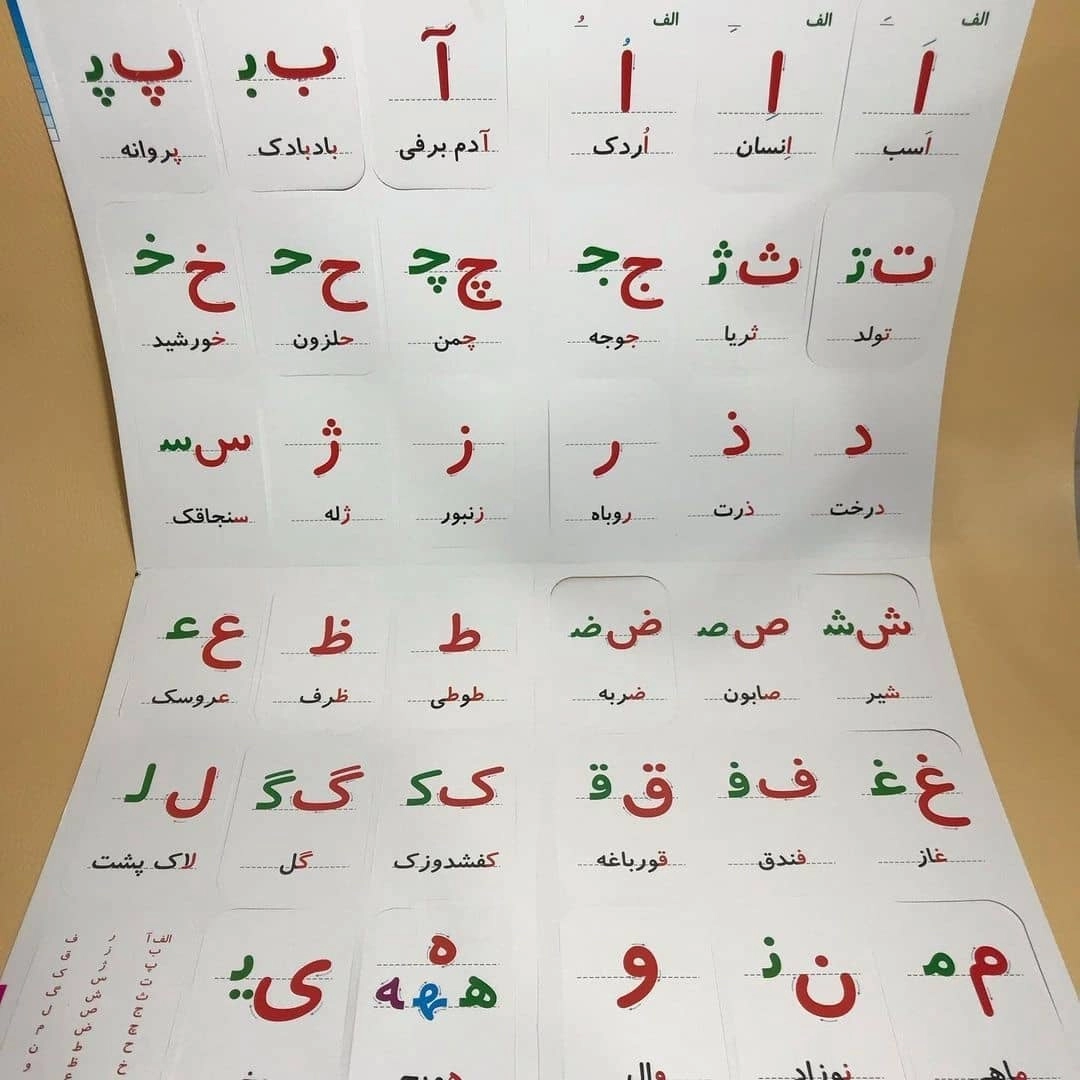 الف َ الف ِ الف ُ
اَ اِ اُ آ ب بـ پ پـ
اَسب اِنسان اُردک آدم برفی بادبادک پروانه
ت تـ ث ثـ ج جـ چ چـ ح حـ خ خـ
تولد ثریا جوجه چمن حلزون خورشید
د ذ ر ز ژ س سـ
درخت ذرت روباه زنبور ژله سنجاقک
ش شـ ص صـ ض ضـ ط ظ ع عـ
شیر صابون ضربه طوطی ظرف عروسک
غ غـ ف فـ ق قـ ک کـ گ گـ ل لـ
غاز فندق قورباغه کفشدوزک گل لاک پشت
م مـ ن نـ و ه هـ ـهـ ـه ی یـ
نوزاد وال
الف آ ر ف
ب ز ق
پ ژ ک
ت س گ
ث ش ل
ج ص م
چ ض ن
ح ط و
خ ظ